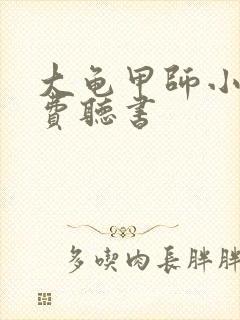 大龟甲師小
費聽書
多喫肉長胖胖